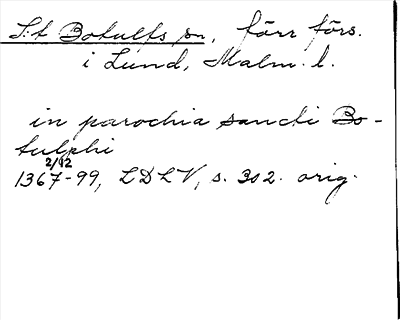 S:t Botulfs sn, förr förs.
i Lund, Malm. l.
in parochia sancti Bo-
tulphi
2/12
1367-99, LDLV, s. 302. orig.